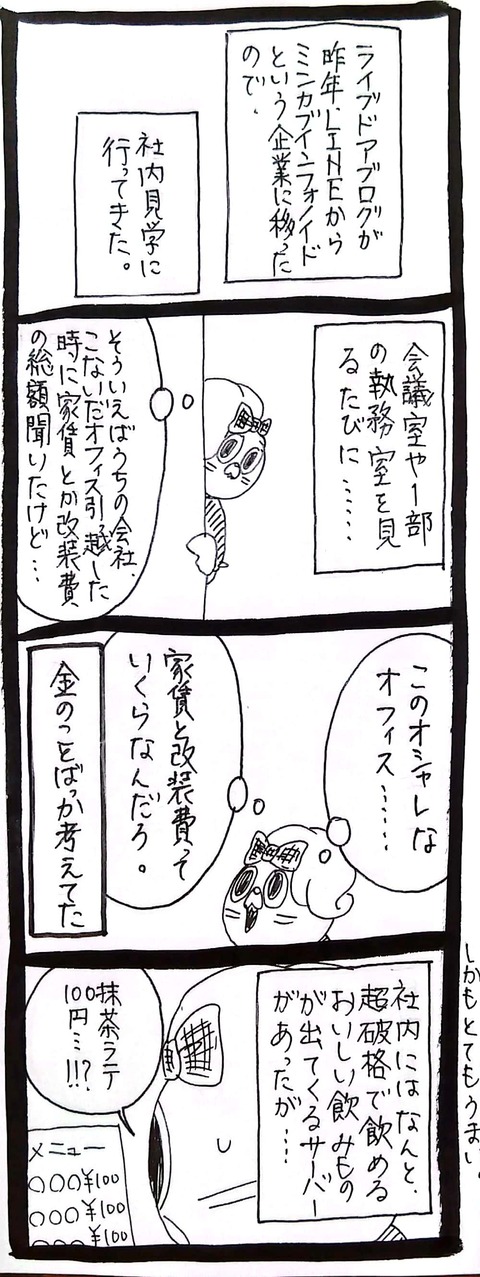 ライブドアブログが
昨年、LINEから
ミンカブインフォノイド
という企業に移った
ので、
社内見学に
行ってきた。
会議室や一部
の執務室を見
るたびに……
そういえばうちの会社、
こないだオフィス引っ越した
時に家賃とか改装費、
の総額聞いたけど…
このオシャレな
オフィス……
家賃と改装費って
いくらなんだろ。
金のことばっか考えてた
しかもとてもうまい。
社内にはなんと、
超破格で飲める
おいしい飲みもの
が出てくるサーバー
があったが…
抹茶ラテ
100円…!!?
メニュー
○○○¥100
○○○¥100
○○○¥100